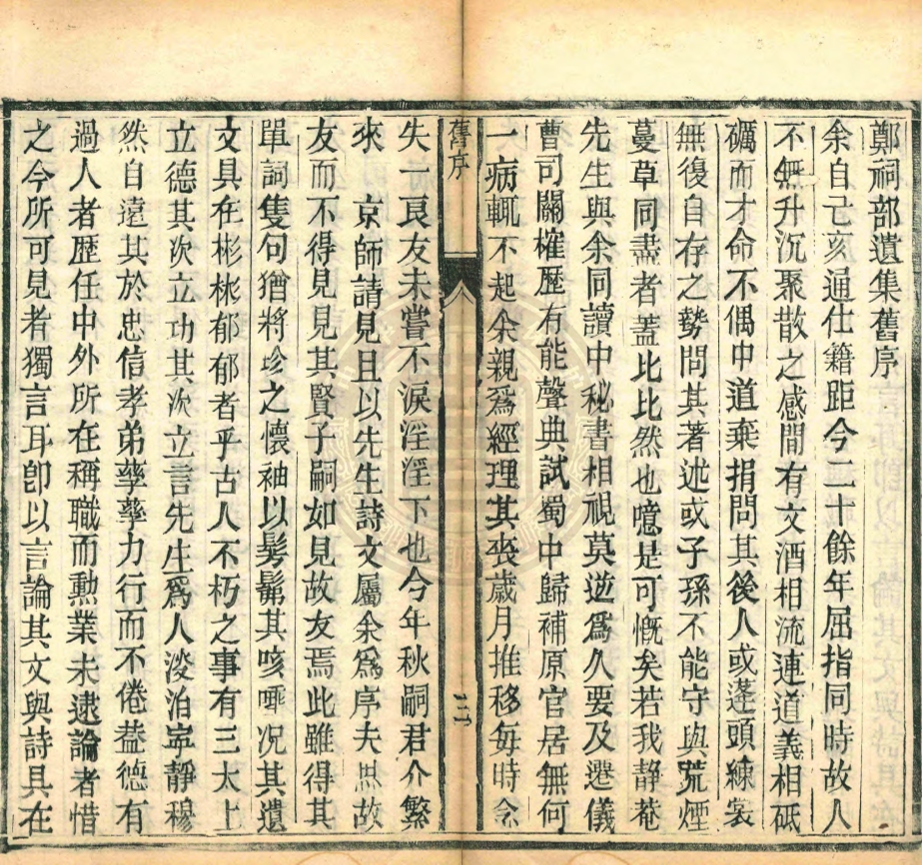 鄭祠部遺集舊序
余自己亥通仕籍距今二十餘年屈指同時故人
不無升沉聚散之感間有文酒相流連道義相砥
礪而才命不偶中道棄捐問其後人或蓬頭練裳
無復自存之勢問其著述或子孫不能守與荒煙
蔓草同盡者蓋比比然也噫是可慨矣若我靜菴
先生與余同讀中秘書相視莫逆爲久要及遷儀
曹司關榷歷有能聲典試蜀中歸補原官居無何
一病輒不起余親爲經理其喪歲月推移每時念
舊序
三
失一良友未嘗不淚淫淫下也今年秋嗣君介繁
來 京師請見且以先生詩文屬余爲序夫思故
友而不得見見其賢子嗣如見故友焉此雖得其
單詞隻句猶將珍之懷袖以髣髴其咳唾况其遺
文具在彬彬郁郁者乎古人不朽之事有三太上
立德其次立功其次立言先生爲人淡泊寧靜穆
然自遠其於忠信孝弟孳孳力行而不倦葢德有
過人者歷任中外所在稱職而勲業未逮論者惜
之今所可見者獨言耳卽以言論其文與詩具在